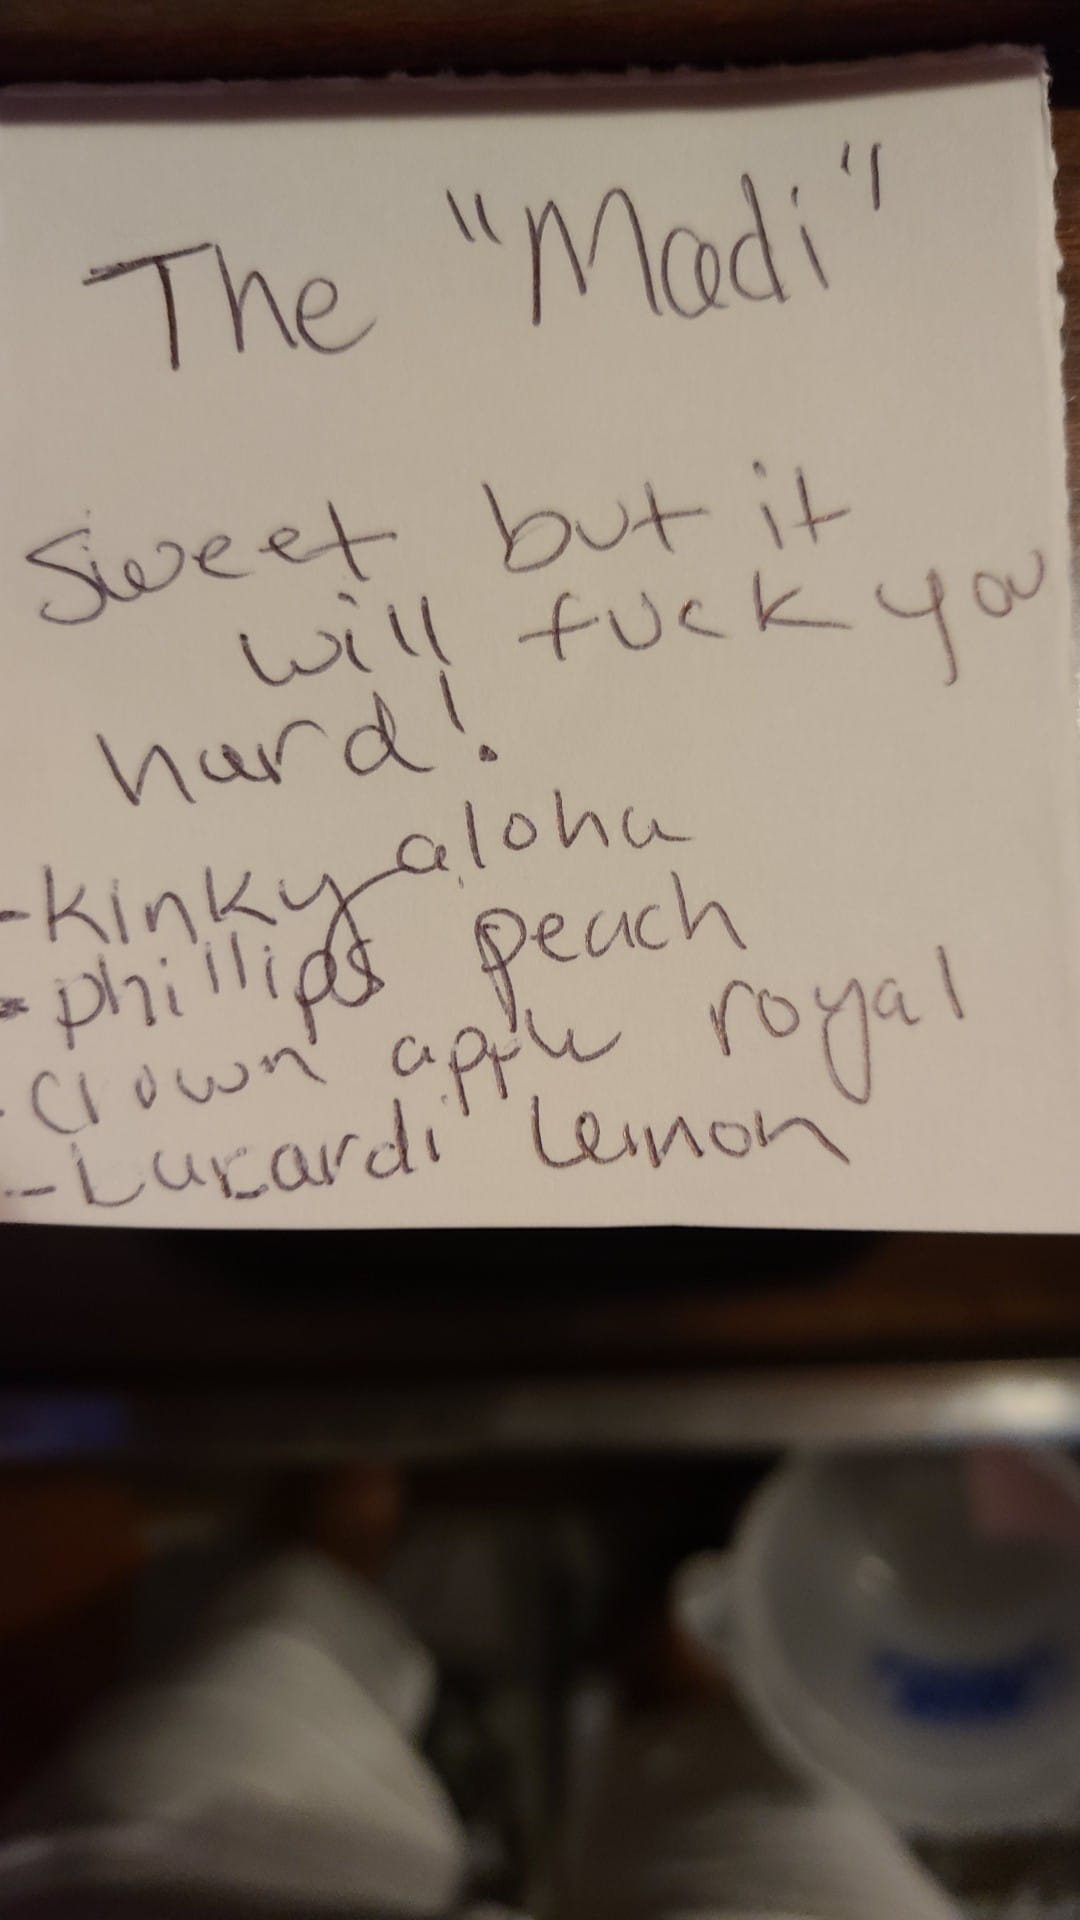 The "Madi"
Sweet but it
will fuck you
hard!
-Kinky aloha
-phillips peach
-Crown apple royal
-Lucardi lemon